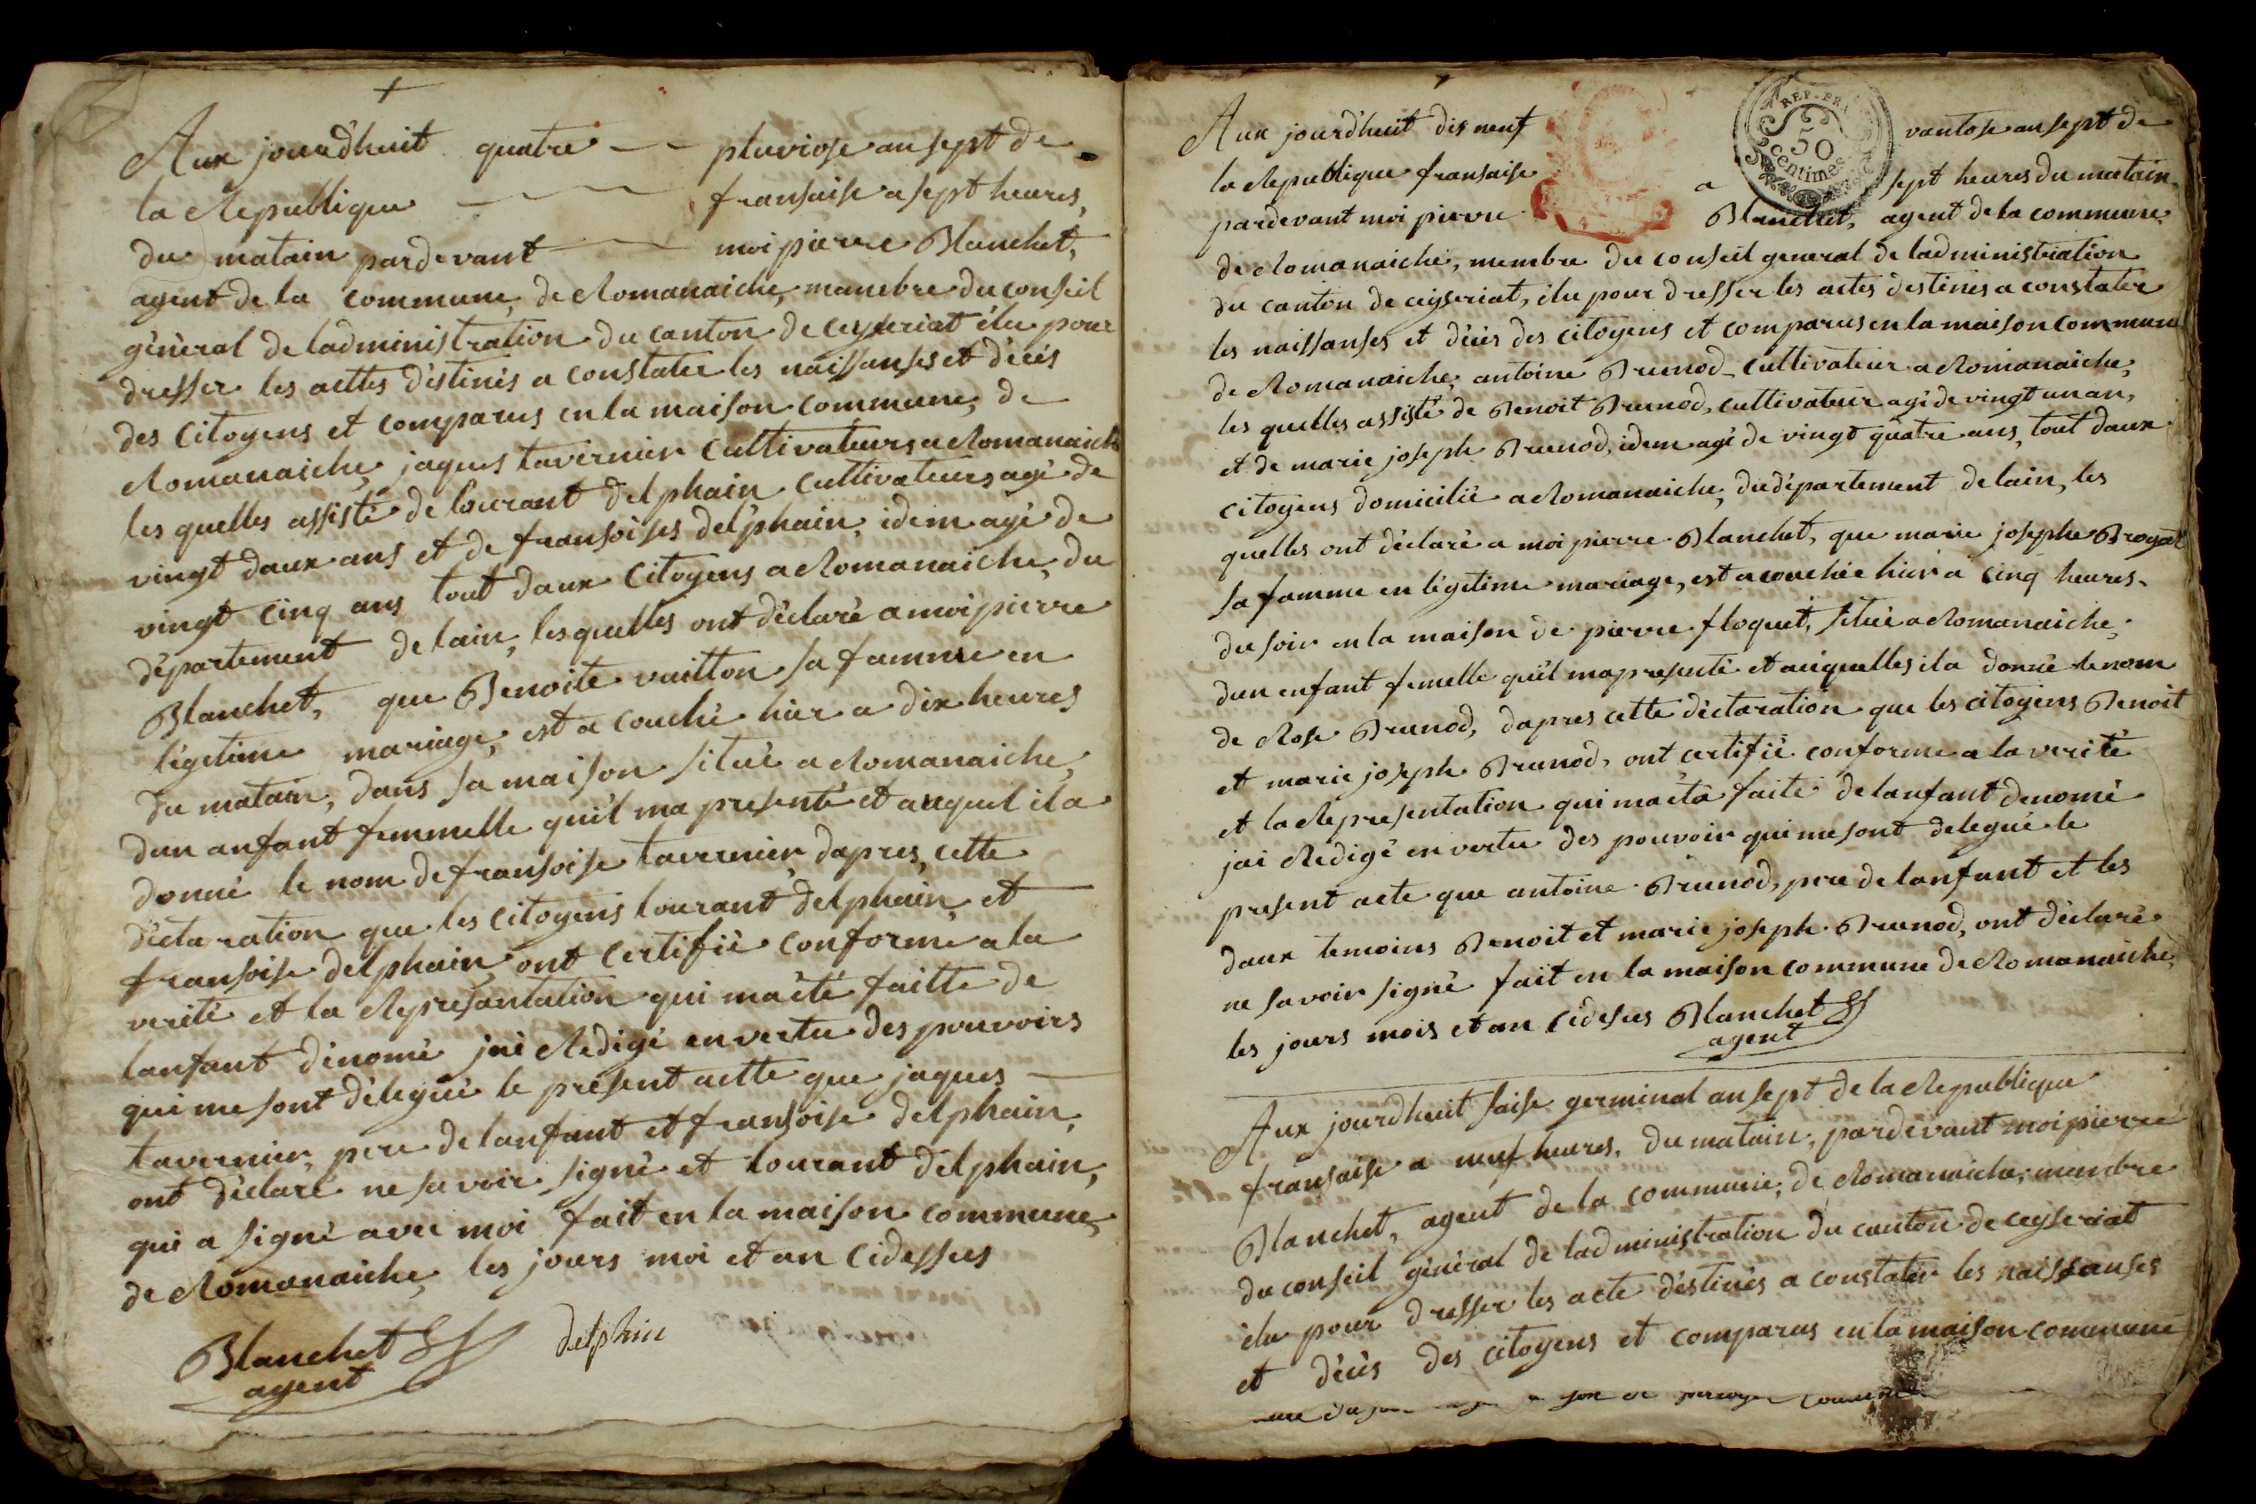 Aux jourdhuit quatre pluviose an sept de
la Republique fransaise a sept heures
du matain pardevant moi pierre Blanchet,
agent de la commune de Romanaiche, manebre du conseil
général de ladministration du canton de ceyseriat élu pour
dresser les acttes déstinés a constater les naissanses et décés
des citoyens et comparus en la maison commune de
Romanaiche jaques tavernier cultivateurs a Romanaiche
les quelles assisté de lourant delphain cultivateurs agé de
vingt daux ans et de fransoises delphain, idem agé de
vingt cinq ans tout daux citoyens a Romanaiche, du
département de lain, lesquelles ont déclaré a moi pierre
Blanchet, que Benoite vuitton sa famme en
légitime mariage, est a couché hier a dix heures
du matain, dans sa maison situé a Romanaiche,
dun anfant femmelle quil ma presenté et auquel il a
donné le nom de fransoise tavernier, dapres, cette
déclaration que les citoyens lourant delphain, et
fransoise delphain, ont certifié conforme a la
verité et la Represantation qui ma été faitte de
lanfant dénomé jai Redigé en vertu des pouvoirs
qui me sont délegué le présent actte que jaques
tavernier, pere de lanfant et fransoise delphain,
ont déclaré ne savoir signé et lourant delphain,
qui a signé avec moi fait en la maison commune,
de Romanaiche, les jours moi et an cidessus
Blanchet delphin
agent
Aux jourdhuit dis neuf vantose an sept de
la Republique fransaise a sept heures du matain,
pardevant moi pierre Blanchet, agent de la commune
REP. FR.
50
centimes
de Romanaiche, membre du conseil general de ladministration
du canton de ceyseriat, élu pour dresser les actes déstinés a constater
les naissanses et décés des citoyens et comparus en la maison commune
de Romanaiche, antoine Brunod cultivateur a Romanaiche,
les quelles assisté de Benoit Brunod, cultivateur agé de vingt un an,
et de marie joseph Brunod, idem agé de vingt quatre ans, tout daux
citoyens domicilié a Romanaiche, du département de lain, les
quelles ont déclaré a moi pierre Blanchet, que marie josephe Broyat
sa famme en légitime mariage, est acouchée hier a cinq heures
du soir en la maison de pierre floquet, situé a Romanaiche,
dun enfant femelle quil ma presenté et auquelles il a donné le nom
de Rose Brunod, dapres cette déclaration que les citoyens Benoit
et marie joseph Brunod, ont certifié conforme a la verité
et la Representation qui ma été faite de lanfant denomé
jai Redigé en vertu des pouvoir qui me sont delegué le
present acte que antoine Brunod, pere de lanfant et les
daux temoins Benoit et marie joseph Brunod, ont déclaré
ne savoir signé fait en la maison commune de Romanaiche,
les jours mois et an cidesus Blanchet
agent
Aux jourdhuit saise germinal an sept de la Republique
fransaise a neuf heures, du matain, pardevant moi pierre
Blanchet, agent de la commune, de Romanaiche, manbre
du conseil général de ladministration du canton de ceyseriat
élu pour dresser les acte déstinés a constater les naissanses
et décés des citoyens et comparus en la maison commune